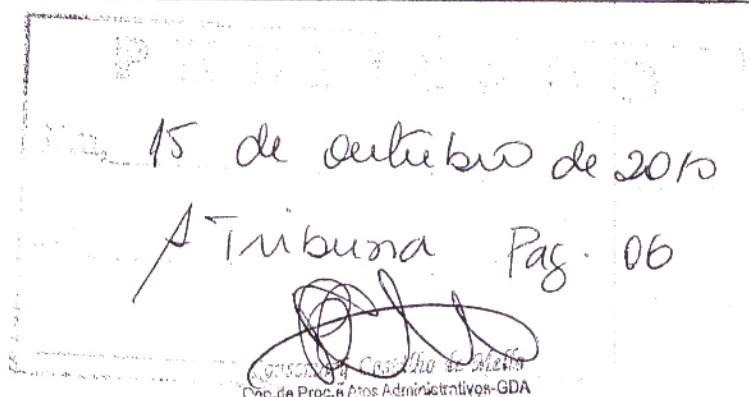 15 de outubro de 2010
A Tribuna Pag. 06
de Mello
de Proc. e Atos Administrativos-GDA